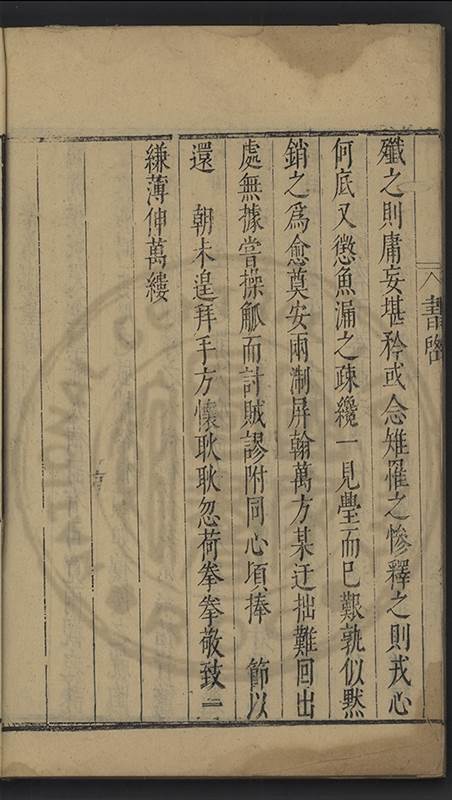 殲之則庸妄堪矜或念雉罹之慘釋之則戎心
何底又懲魚漏之疎纔一見舋而已艱孰似黙
銷之為愈奠安兩淛屏翰萬方某迂拙難回出
處無據嘗操觚而討賊謬附同心頃捧　節以
還　朝未遑拜手方懷耿耿忽荷拳拳敬致二
縑薄伸萬縷
書啓